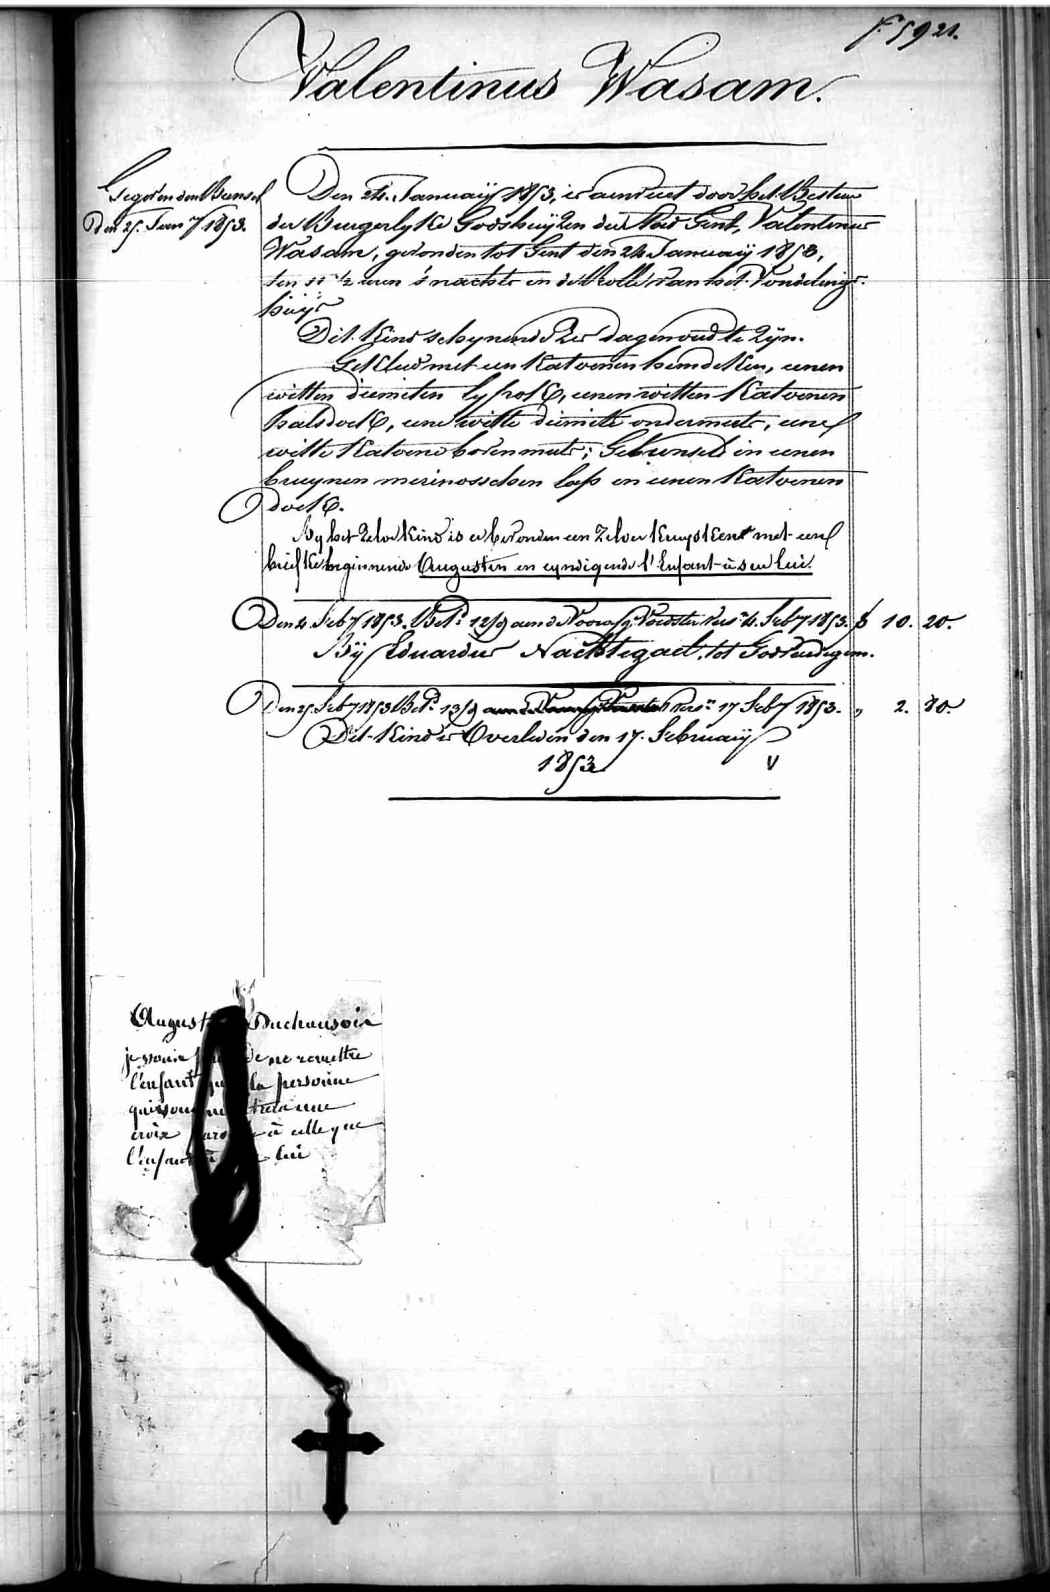 f° 5921.
Valentinus Wasam.
den 25. Jan.ry 1853.
Den 24. January 1853, is aenveert door het Bestuur
der Burgerlyke Godshuyzen der Stad Gent, Valentinus
Wasam, gevonden tot Gent den 24 January 1853,
ten 11 1/2 uren 's nachts in de Rolle van het Vondeling-
huys
Dit Kind schynende zes dagen oud te zyn.
Gekleed met een Katoenen hemdeken, eenen
witten diemiten lyfrok, eenen witten Katoenen
halsdoek, eene witte diemite ondermuts, eene
witte Katoene bovenmuts; Gebunseld in eenen
bruynen merinosschen lap en eenen Katoenen
doek.
By het zelve Kind is er bevonden een zilver Kruysken met een
briefke beginnende Augusten en eyndigende l'Enfant à seu lui.
Den 4. Feb.y 1853. Bet.d 12/9 aen de Voors. Voedster vers. 4. Feb.y 1853. 10. 20.
By Eduardus Nachtegael, tot Godveerdegem.
Den 25 Feb.y 1853 Bet.d 13/9 vers. 17 Feb.y 1853. „ 2. 80.
Dit Kind is Overleden den 17. February
1853
August Duchausoir
je vous de ne remettre
l'enfant la personne
qui vous une
croix à celle que
l'enfant à lui